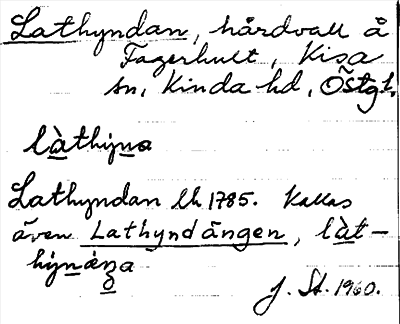 Lathyndan, hårdvall å
Fagerhult, Kisa
sn, Kinda hd, Östgl.
làthyna
Lathyndan lh 1785. Kallas
även Lathyndängen, làt-
hynäŋa
J. St. 1960.